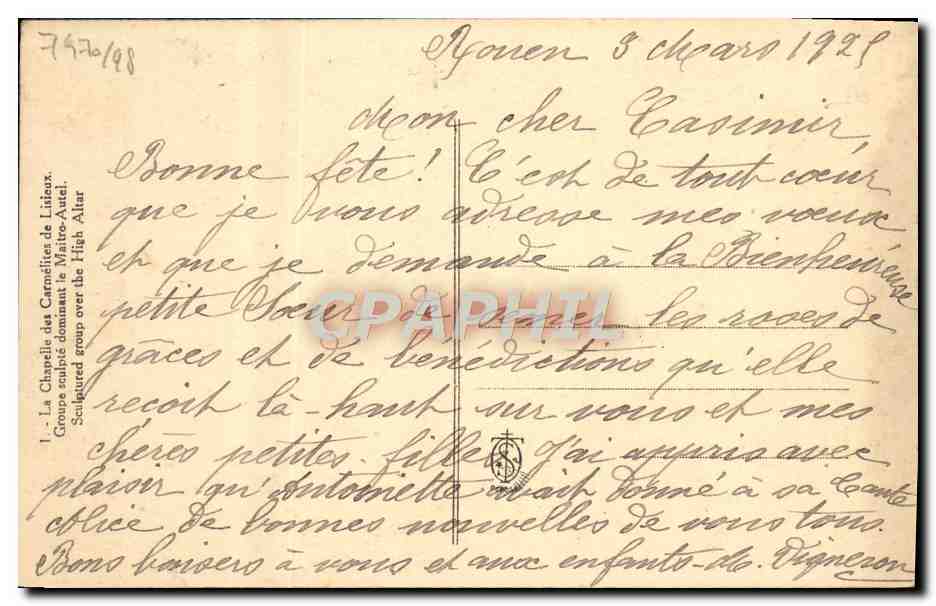 7970/98
Rouen 3 Mars 1925
Mon cher Casimir,
Bonne fête! C'est de tout cœur
que je vous adresse mes vœux
et que je demande à la Bienheureuse
petite Sœur de semer les roses de
grâces et de bénédictions qu'elle
reçoit là-haut sur vous et mes
chères petites-filles. J'ai appris avec
plaisir qu'Antoinette avait donné à sa tante
Alice de bonnes nouvelles de vous tous.
Bons baisers à vous et aux enfants - M. Vigneron
1. - La Chapelle des Carmélites de Lisieux.
Groupe sculpté dominant le Maitre-Autel.
Sculptured group over the High Altar
CPAPHIL